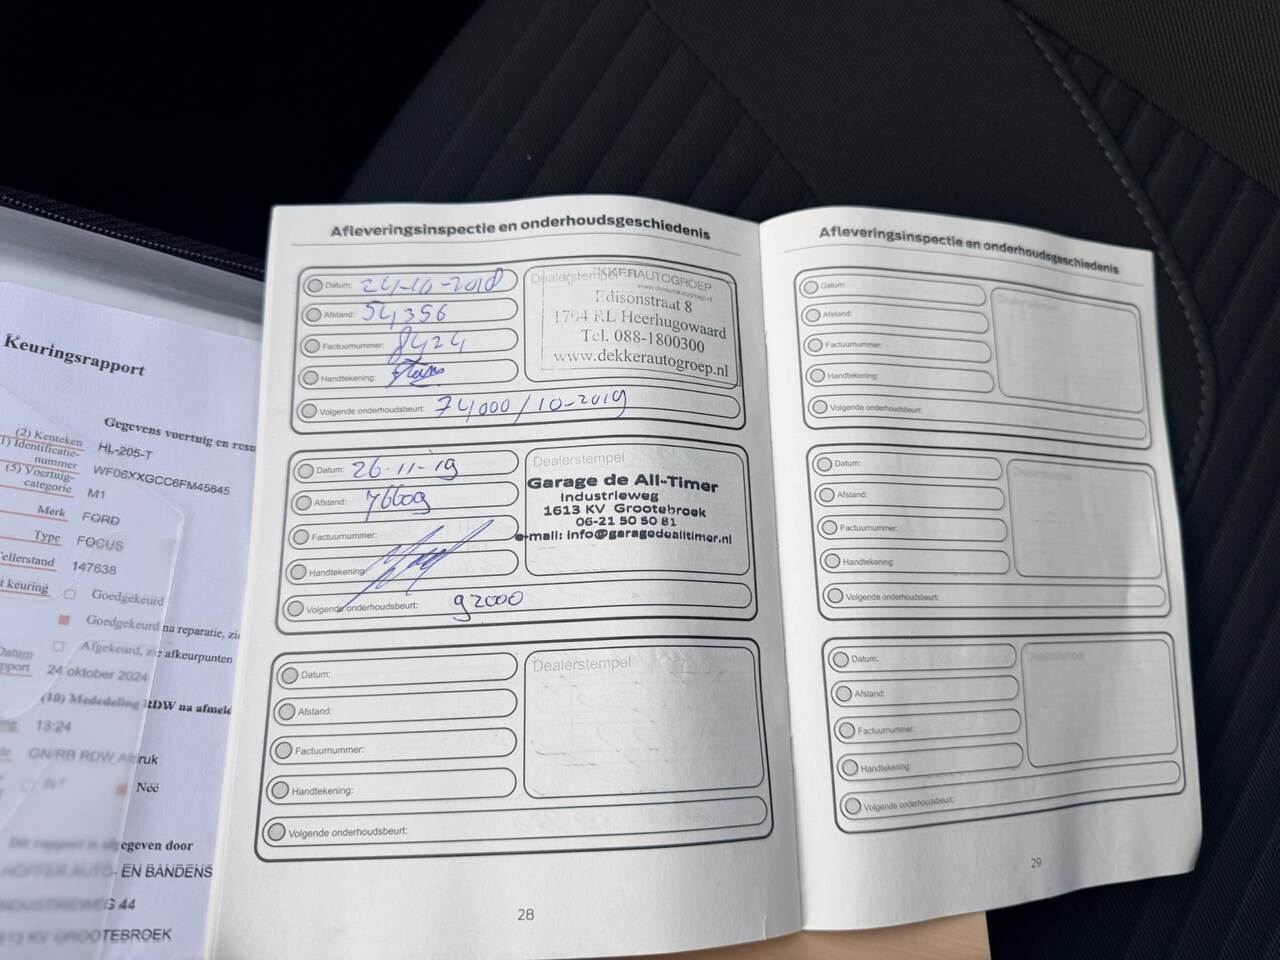 Keuringsrapport
Gegevens voertuig en resu
(2) Kenteken HL-205-T
1) Identificatie-
nummer WF06XXGCC6FM45845
(5) Voertuig-
categorie M1
Merk FORD
Type FOCUS
Tellerstand 147638
t keuring
Goedgekeurd
Goedgekeurd na reparatie, zie
Afgekeurd, zie afkeurpunten
Datum
pport 24 oktober 2024
(10) Mededeling RDW na afmeld
13:24
GN/RB RDW Afdruk
Nee
Dit rapport is afgegeven door
HOFFER AUTO- EN BANDENS
INDUSTRIEWEG 44
1613 KV GROOTEBROEK
Afleveringsinspectie en onderhoudsgeschiedenis
Datum: 24-10-2018
Afstand: 54356
Factuurnummer: 8424
Handtekening:
Volgende onderhoudsbeurt: 74000/10-2019
Dealerstempel
DEKKERAUTOGROEP
Edisonstraat 8
1704 RL Heerhugowaard
Tel. 088-1800300
www.dekkerautogroep.nl
Datum: 26-11-19
Afstand: 76609
Factuurnummer:
Handtekening:
Volgende onderhoudsbeurt: 92000
Dealerstempel
Garage de All-Timer
Industrieweg
1613 KV Grootebroek
06-21 50 50 81
e-mail: info@garagedealltimer.nl
Datum:
Afstand:
Factuurnummer:
Handtekening:
Volgende onderhoudsbeurt:
Dealerstempel
28
Afleveringsinspectie en onderhoudsgeschiedenis
Datum:
Afstand:
Factuurnummer:
Handtekening:
Volgende onderhoudsbeurt:
Dealerstempel
Datum:
Afstand:
Factuurnummer:
Handtekening:
Volgende onderhoudsbeurt:
Dealerstempel
Datum:
Afstand:
Factuurnummer:
Handtekening:
Volgende onderhoudsbeurt:
Dealerstempel
29